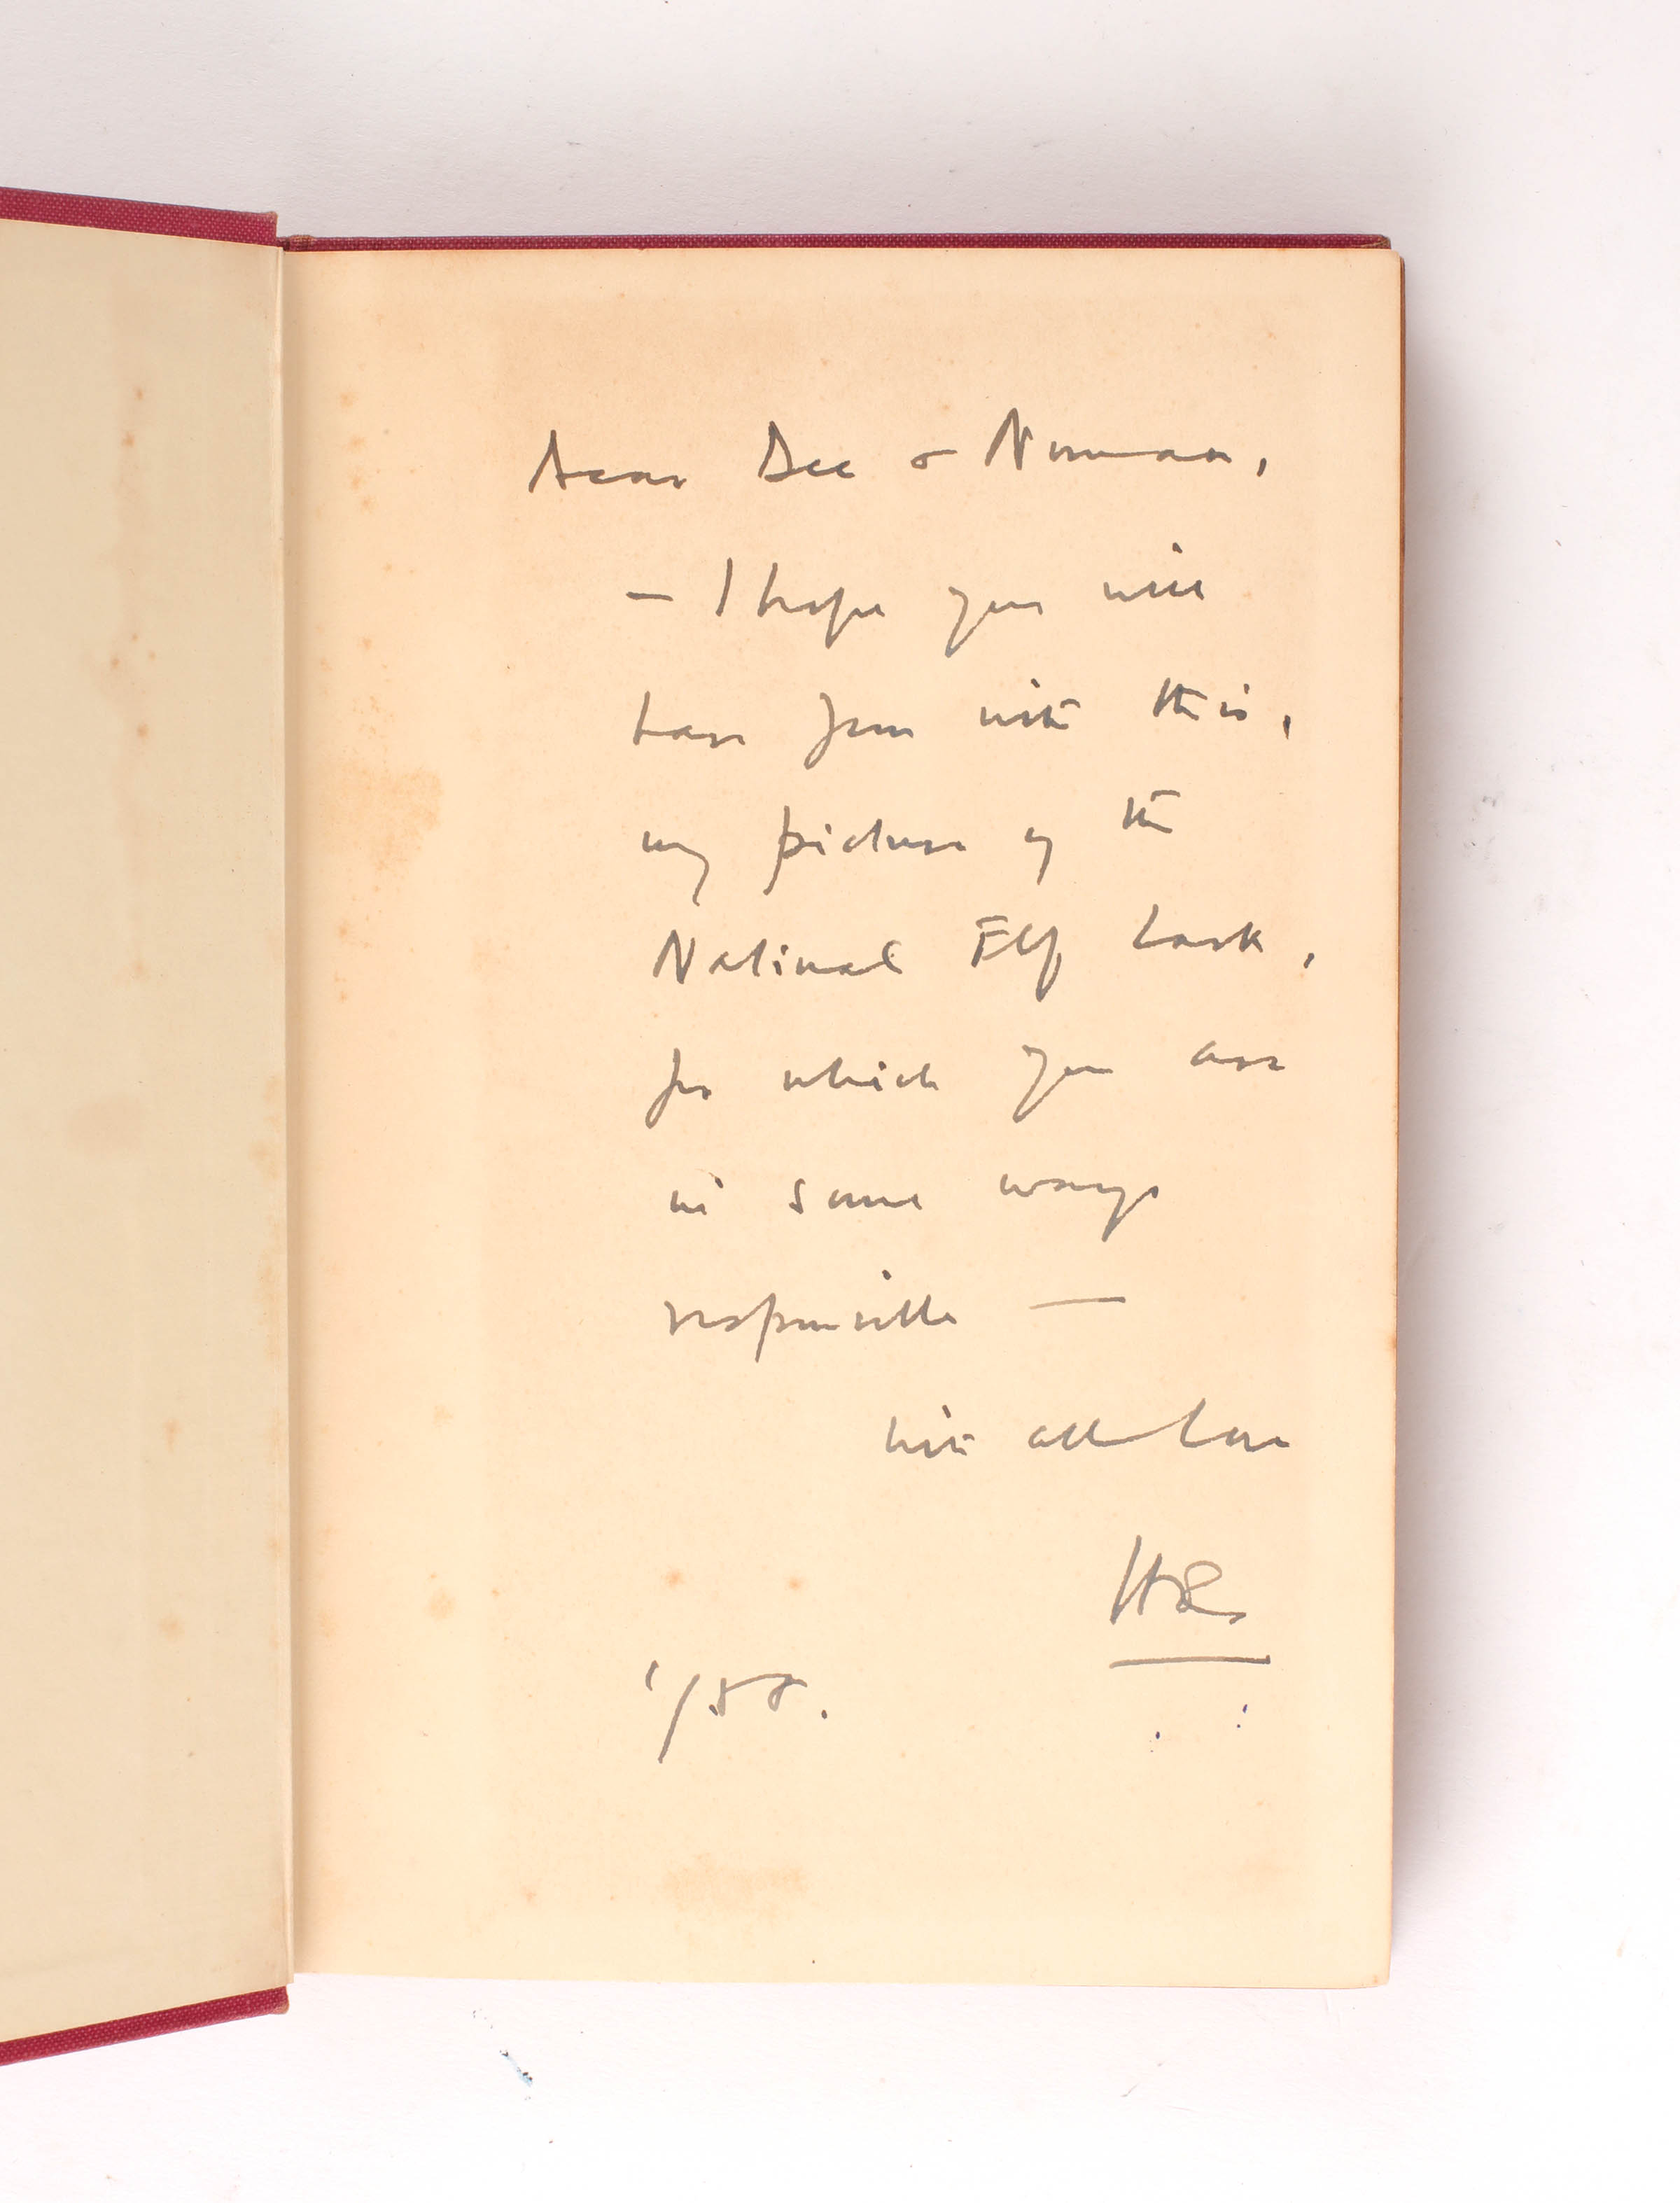 Dear Dee & Norman,
– I hope you will
have fun with this,
my picture of the
National Elf Lark,
for which you are
in some ways
responsible —
with all love
1/58.